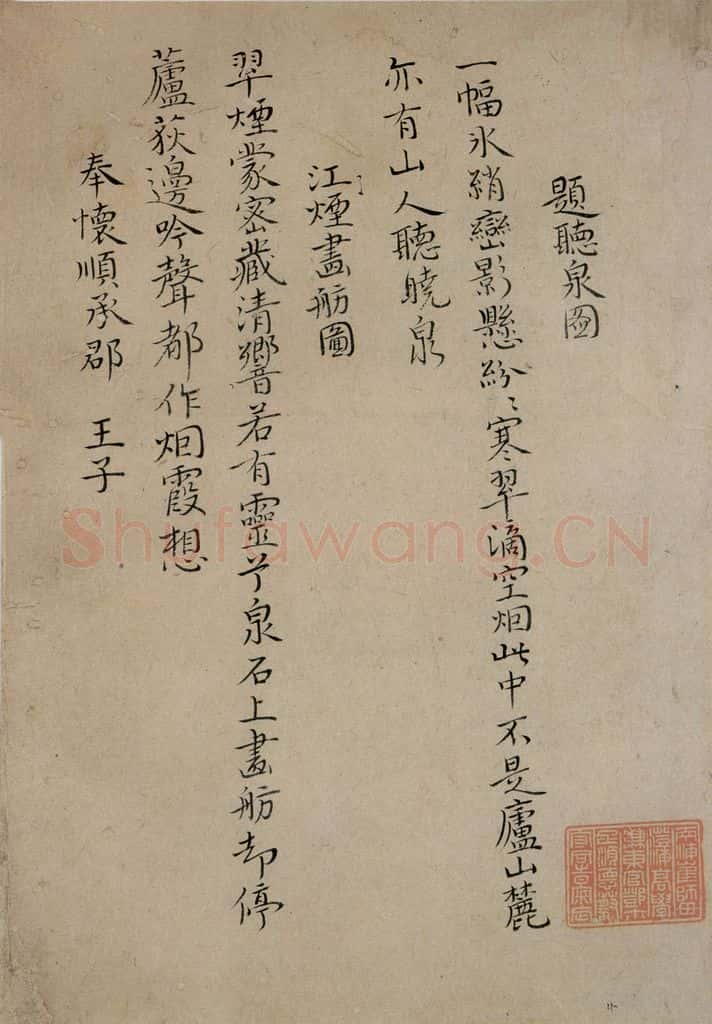 題聽泉圖
一幅氷綃巒影懸紛〻寒翠滴空烟此中不是廬山麓
亦有山人聽曉泉
江煙畫舫圖
翠煙蒙密藏清響若有靈兮泉石上畫舫却停
蘆荻邊吟聲都作烟霞想
奉懷順承郡 王子
Shufawang.CN